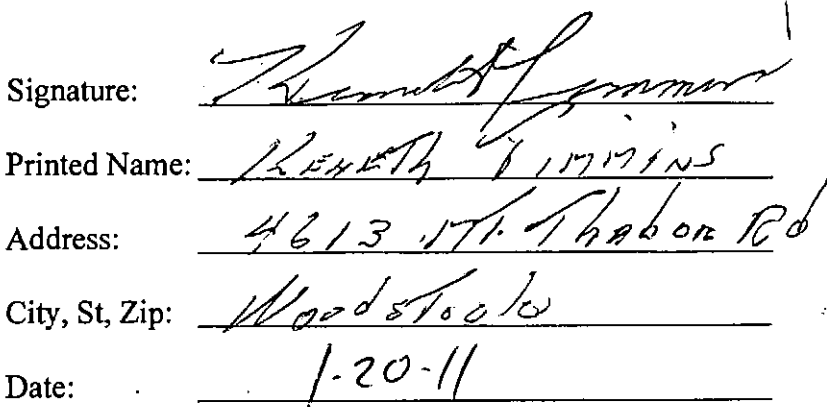 Signature: Kenneth Timmins
Printed Name: KENETh TIMMINS
Address: 4613 Mt. Thabor Rd
City, St, Zip: Woodstock
Date: 1-20-11